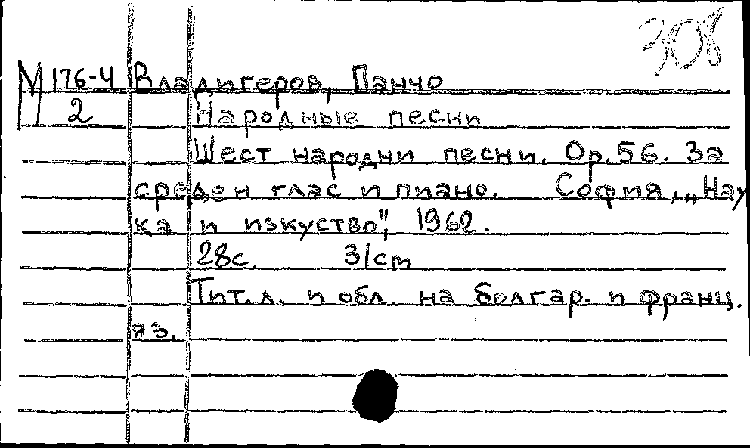 308
М 176-4 Владигеров, Панчо
2 Народные песни
Шест народни песни. Ор.56. За
среден глас и пиано. София, „Нау
ка и изкуство", 1962.
28с. 31cm
Тит.л. и обл. на болгар. и франц.
яз.